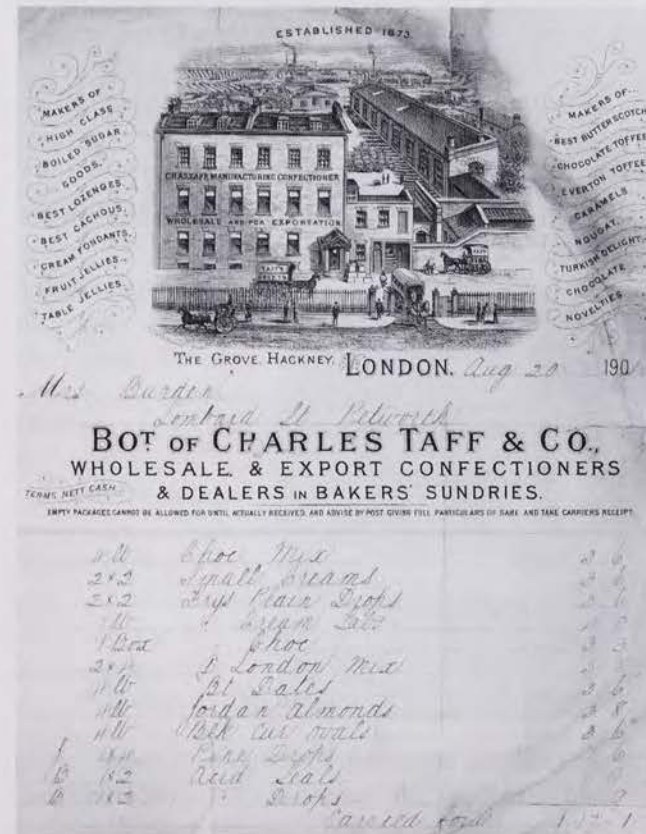 ESTABLISHED 1873
MAKERS OF
HIGH CLASS
BOILED SUGAR
GOODS.
BEST LOZENGES.
BEST CACHOUS.
CREAM FONDANTS.
FRUIT JELLIES.
TABLE JELLIES.
CHAS TAFF MANUFACTURING CONFECTIONER
WHOLESALE AND FOR EXPORTATION
MAKERS OF
BEST BUTTERSCOTCH
CHOCOLATE TOFFEE
EVERTON TOFFEE
CARAMELS
NOUGAT.
TURKISH DELIGHT.
CHOCOLATE
NOVELTIES
THE GROVE, HACKNEY, LONDON. Aug 20 190
Mrs Burden
Lombard St Petworth
BOT OF CHARLES TAFF & CO.,
WHOLESALE & EXPORT CONFECTIONERS
TERMS NETT CASH & DEALERS IN BAKERS' SUNDRIES.
EMPTY PACKAGES CANNOT BE ALLOWED FOR UNTIL ACTUALLY RECEIVED, AND ADVISE BY POST GIVING FULL PARTICULARS OF SAME AND TAKE CARRIERS RECEIPT
4 lb Choc Mix 3 6
2x2 Small Creams 3 6
2x2 Frys Plain Drops 3 6
Cream
1 Box Choc 3 3
London Mix
4 lb Dates 3 6
4 lb Jordan Almonds 3 8
4 lb ovals 3 6
Pine Drops 6
1x2 Acid
1x2 " Drops 9
Carried ford